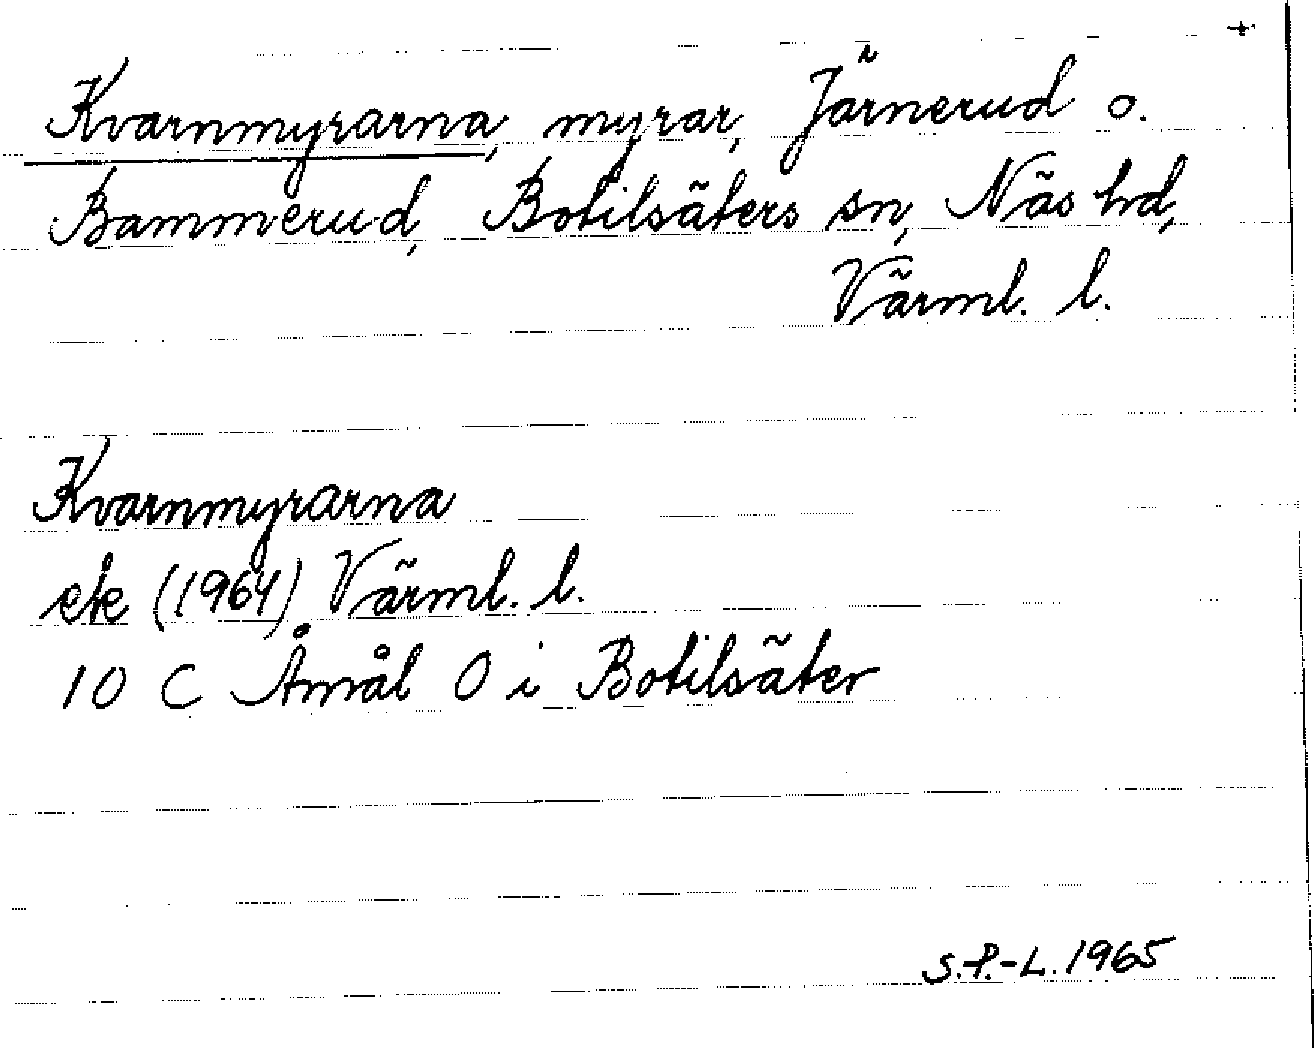 +
Kvarnmyrarna, myrar, Järnerud o.
Bammerud, Botilsäters sn, Näs hd,
Värml. l.
Kvarnmyrarna
ek (1964) Värml. l.
10 C Åmål O i Botilsäter
S.P.-L. 1965